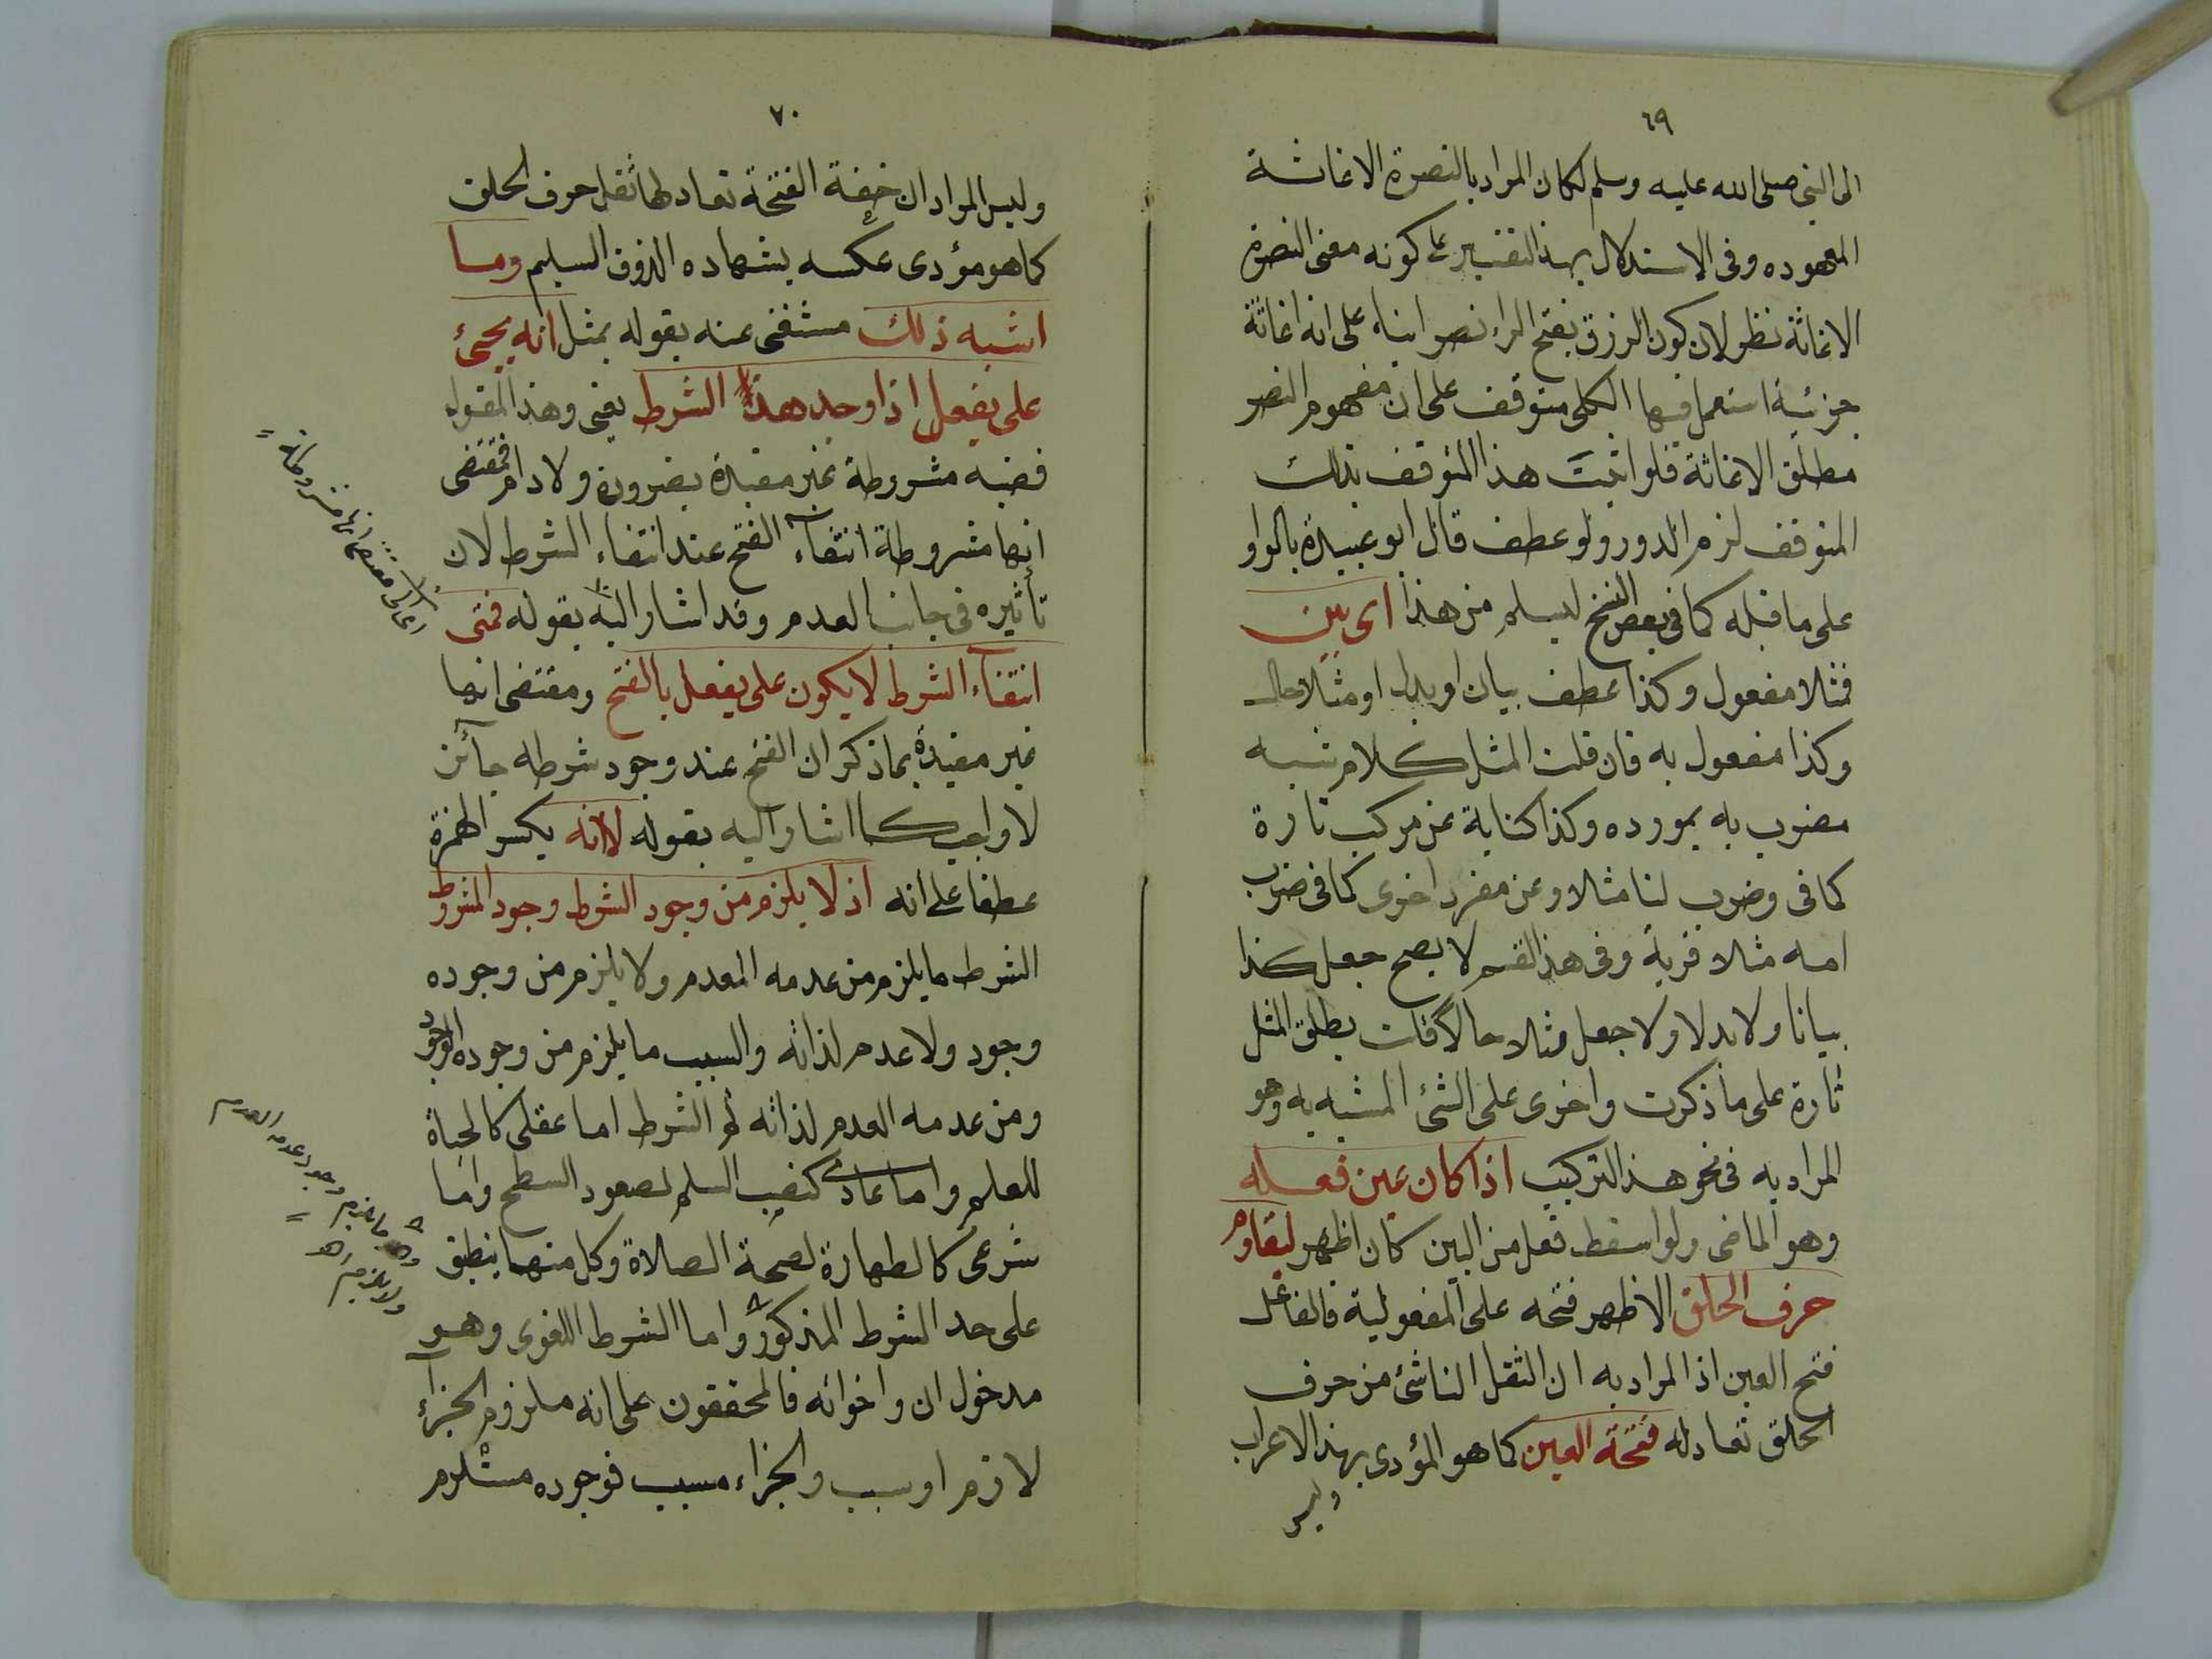 ٦٩
الى النبى صلى الله عليه وسلم لكان المراد بالنصرة الاغاثة
المعهوده وفى الاستدلال بهذا التفسير على كونه معنى النصرة
الاغاثة نظر لان كون الرزق بفتح الراء نصرا بناء على انه اغاثة
جزئية استعمل فيها الكلى متوقف على ان مفهوم النصر
مطلق الاغاثة فلو اثبت هذا المتوقف بذلك
المتوقف لزم الدور ولو عطف قال ابو عبيدة بالواو
على ما قبله كما فى بعض النسخ ليسلم من هذا اى بين
فمثلا مفعول وكذا عطف بيان او بدل او مثلا حال
وكذا مفعول به فان قلت المثل كلام شبه
مضرب به بمورده وكذا كناية عن مركب تارة
كما فى وضرب لنا مثلا وعن مفرد اخرى كما فى ضرب
الله مثلا قرية وفى هذا القسم لا يصح جعل كذا
بيانا ولا بدلا ولا جعل مثلا حالا قلت يطلق المثل
تارة على ما ذكرت واخرى على الشئ المشبه به وهو
المراد به فى نحو هذا التركيب اذا كان عين فعله
وهو الماضى ولو اسقط فعل من البين كان اظهر ليقاوم
حرف الحلق الاظهر فتحه على المفعولية فالفاعل
فتح العين اذ المراد به ان الثقل الناشئ من حرف
الحلق تعادله فتحة العين كما هو المؤدى بهذا الاعراب
وليس
٧٠
وليس المراد ان خفة الفتحة تعادلها ثقل حرف الحلق
كما هو مؤدى عكسه بشهاده الذوق السليم وما
اشبه ذلك مستغنى عنه بقوله بمثل انه يجئ
على يفعل اذا وجد هذا الشرط يعنى وهذا المقول
قضيه مشروطة غير مقيدة بضرورة ولا دوام فمقتضى
انها مشروطة انتفاء الفتح عند انتفاء الشرط لان
تأثيره فى جانب العدم وقد اشار اليه بقوله فمتى
انتفاء الشرط لا يكون على يفعل بالفتح ومقتضى انها
غير مقيدة بما ذكر ان الفتح عند وجود شرطه جائز
لا واجب كما اشار اليه بقوله لا انه بكسر الهمزة
عطفا على انه اذ لا يلزم من وجود الشرط وجود المشروط
الشرط ما يلزم من عدمه العدم ولا يلزم من وجوده
وجود ولا عدم لذاته والسبب ما يلزم من وجوده الوجود
ومن عدمه العدم لذاته ثم الشرط اما عقلى كالحياة
للعلم واما عادى كنصب السلم لصعود السطح واما
شرعى كالطهارة لصحة الصلاة وكل منها ينطبق
على حد الشرط المذكور واما الشرط اللغوى وهو
مدخول ان واخواته فالمحققون على انه ملزوم الجزاء
لازم او سبب والجزاء مسبب فوجوده مستلزم